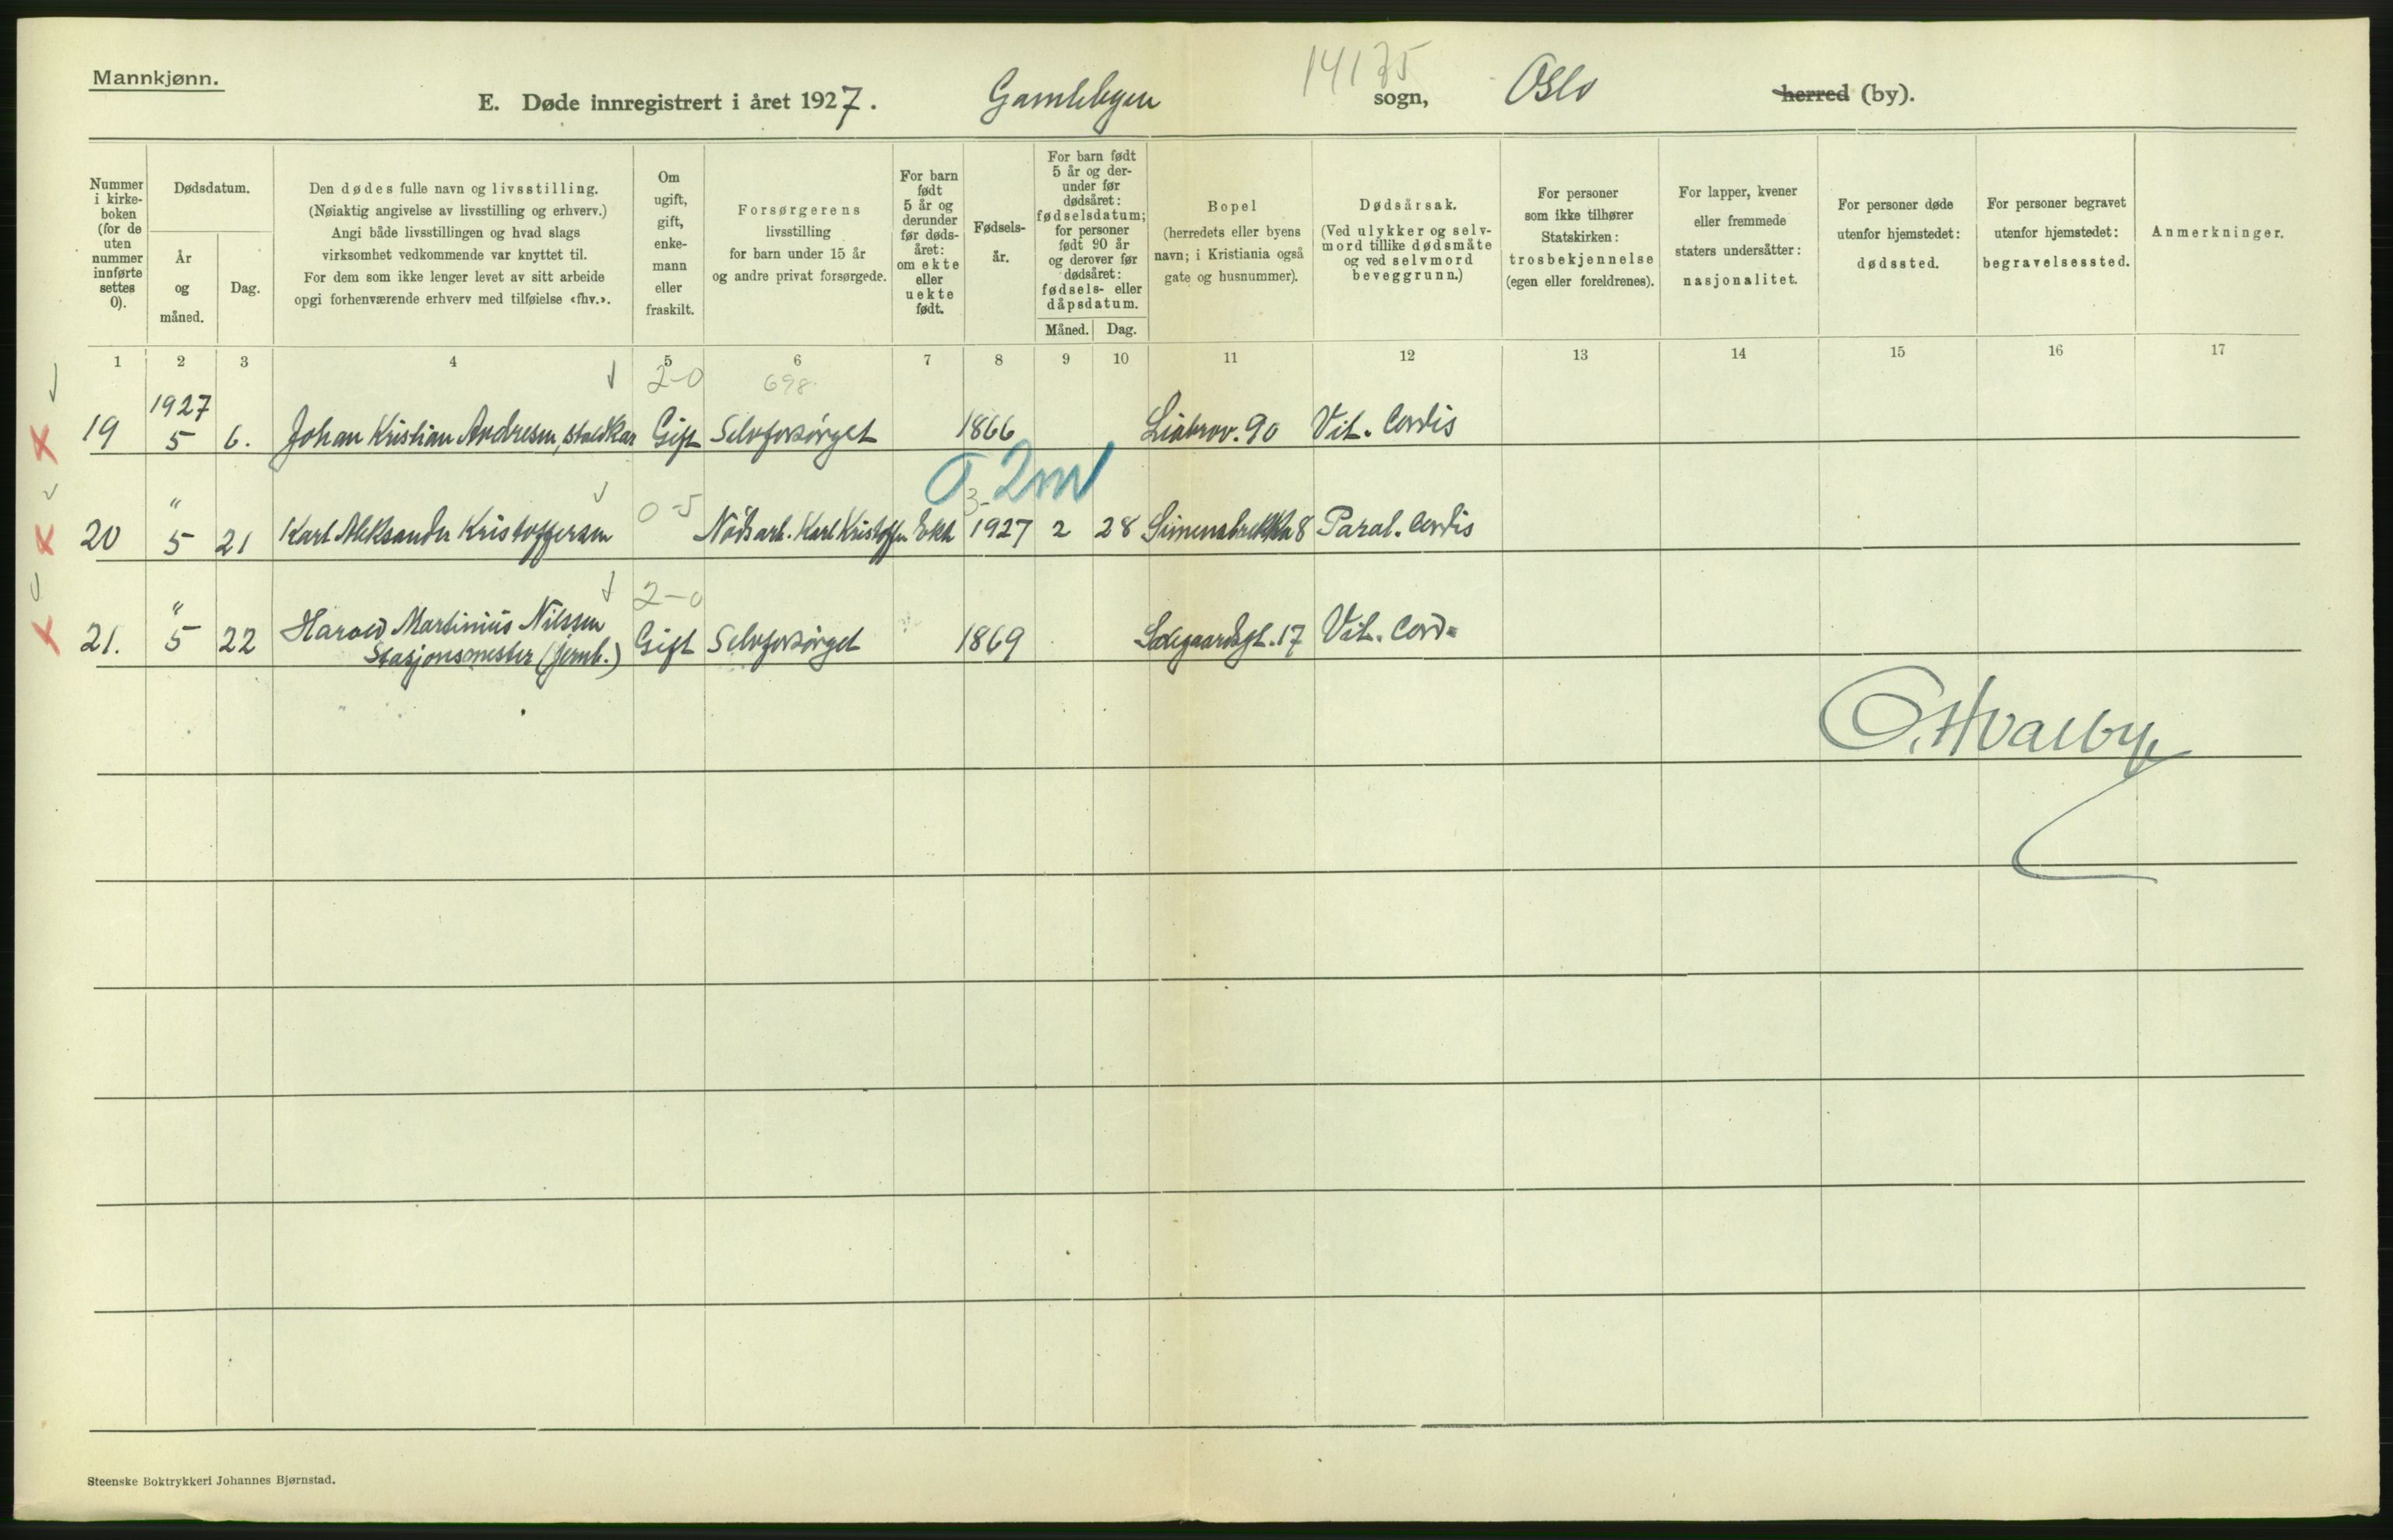 Mannkjønn.
14175
E. Døde innregistrert i året 1927. Gamlebyen sogn, Oslo herred (by).
Nummer i kirke-boken (for de uten nummer innførte settes 0).
Dødsdatum.
År og måned.
Dag.
Den dødes fulle navn og livsstilling.
(Nøiaktig angivelse av livsstilling og erhverv.)
Angi både livsstillingen og hvad slags
virksomhet vedkommende var knyttet til.
For dem som ikke lenger levet av sitt arbeide
opgi forhenværende erhverv med tilføielse «fhv.».
Om ugift, gift, enke-mann eller fraskilt.
Forsørgerens
livsstilling
for barn under 15 år
og andre privat forsørgede.
For barn født 5 år og derunder før døds-året: om ekte eller uekte født.
Fødsels-år.
For barn født 5 år og der-under før dødsåret: fødselsdatum; for personer født 90 år og derover før dødsåret: fødsels- eller dåpsdatum.
Måned. Dag.
Bopel
(herredets eller byens
navn; i Kristiania også
gate og husnummer).
Dødsårsak.
(Ved ulykker og selv-
mord tillike dødsmåte
og ved selvmord
beveggrunn.)
For personer
som ikke tilhører
Statskirken:
trosbekjennelse
(egen eller foreldrenes).
For lapper, kvener
eller fremmede
staters undersåtter:
nasjonalitet.
For personer døde
utenfor hjemstedet:
dødssted.
For personer begravet
utenfor hjemstedet:
begravelsessted.
Anmerkninger.
1 2 3 4 5 6 7 8 9 10 11 12 13 14 15 16 17
2-0 698.
1927
19 5 6. Johan Kristian Andresen, staldkar Gift Selvforsørget 1866 Liabrov. 90 Vit. Cordis
2m
" 0-5 3-
20 5 21 Karl Aleksander Kristoffersen Nødsarb. Karl Kristoffer Ekte 1927 2 28 8 Paral. Cordis
" 2-0
21. 5 22 Harald Martinius Nilssen Gift Selvforsørget 1869 17 Vit. Cord=
Stasjonsmester (jernb.)
O. Hvalbye
Steenske Boktrykkeri Johannes Bjørnstad.